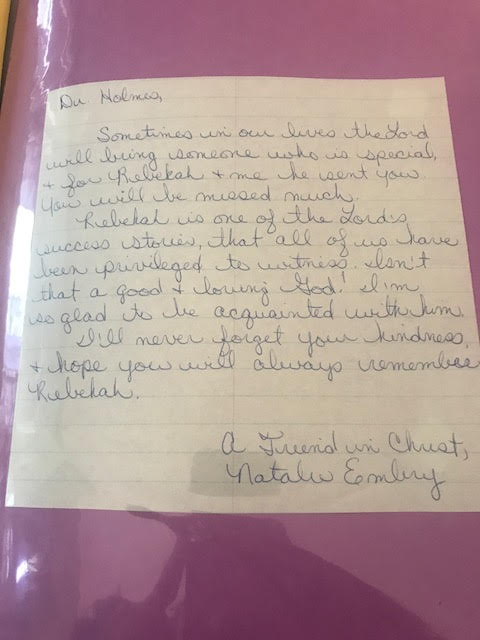 Dr. Holmes,
Sometimes in our lives the Lord
will bring someone who is special,
+ for Rebekah + me he sent you.
You will be missed much.
Rebekah is one of the Lord's
success stories, that all of us have
been privileged to witness. Isn't
that a good + loving God! I'm
so glad to be acquainted with him.
I'll never forget your kindness,
+ hope you will always remember
Rebekah.
A Friend in Christ,
Natalie Embry